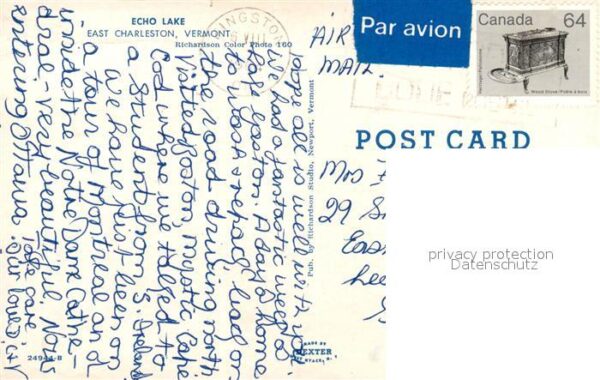 ECHO LAKE
EAST CHARLESTON, VERMONT
Richardson Color Photo 160
KINGSTON
VIII
Par avion
Canada 64
Wood Stove / Poêle à bois
AIR
MAIL.
POST CARD
Pub. by Richardson Studio, Newport, Vermont
Mrs
29 S
Eas
Lee
privacy protection
Datenschutz
Hope all is well with you
We had a fantastic weekend
near Boston. A day @ home
to wash & repair had on
the road driving north
Visited Boston, Mystic, Cape
Cod where we talked to
a Student from S. Ireland
We have just been on
a tour of Montreal and
inside the Notre Dame Cathe-
dral - very beautiful. Now
entering Ottawa. Take care
our love
24944-B
MADE BY
DEXTER
WEST NYACK, N.Y.